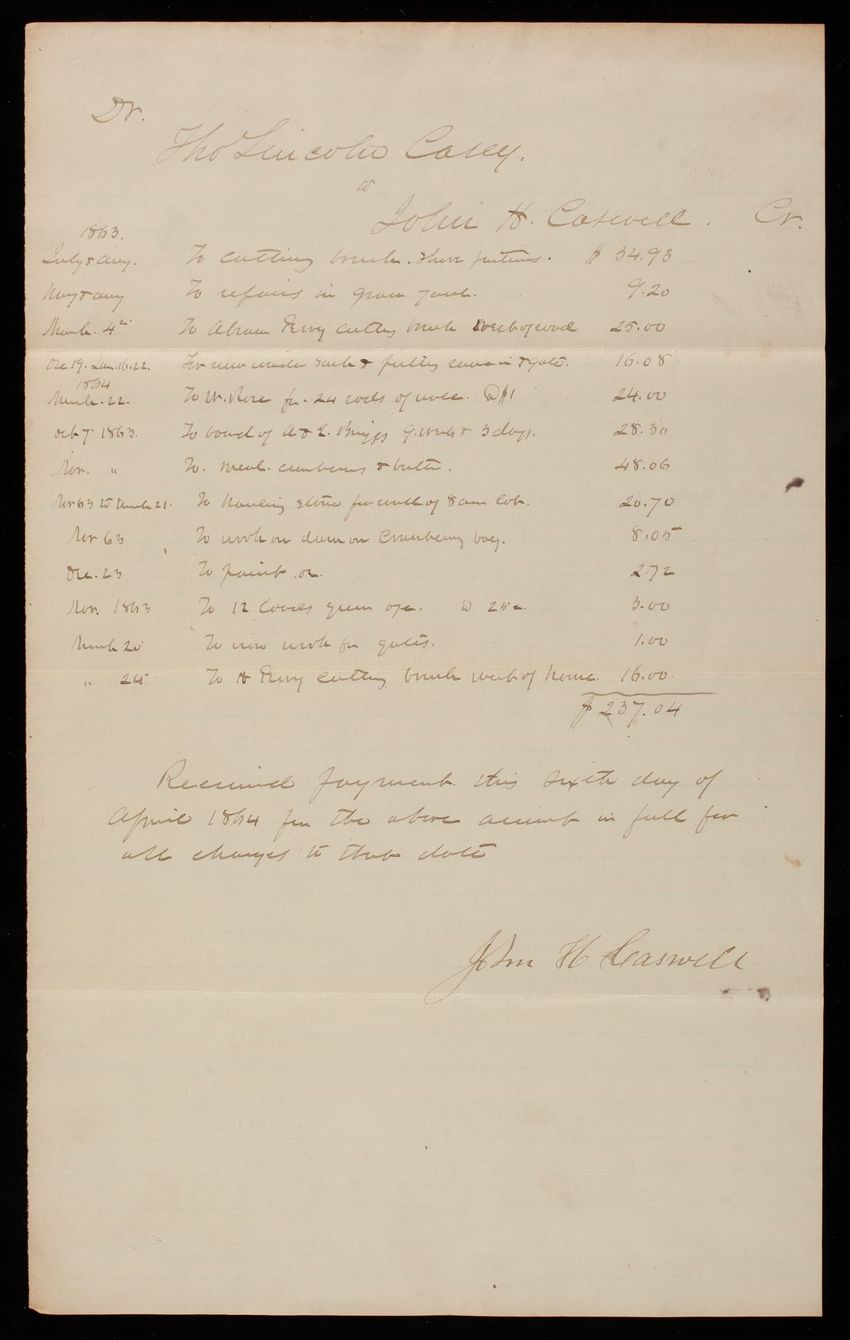 Dr.
Tho Lincoln Casey.
to
John H. Caswell. Cr.
1863.
July & Aug. To cutting brush. Shore pastures. $ 34.93
Aug To repairs in grave yard. 9.20
March. 4th To Abram Perry cutting brush west of road 25.00
Dec 19. Jan. 16. 22. For new window sash & putting same in & gate. 16.08
1864
March. 22. To W. Rose for 24 rods of wall. @ $1 24.00
Oct 7 1863. To board of A & L. Briggs 9 weeks & 3 days. 28.30
Nov. " To meal. cranberries & butter. 48.06
Nov 63 to March 21. To hauling stone for wall of 8 acre lot. 20.70
Nov 63 To work on dam on Cranberry bog. 8.05
Dec. 23 To paint 2.72
Nov. 1863 To 12 @ 25c. 3.00
March 20 To iron work for gates. 1.00
" 24 To H Perry cutting brush west of house. 16.00
$ 237.04
Received payment this sixth day of
April 1864 for the above amount in full for
all charges to that date
John H Caswell